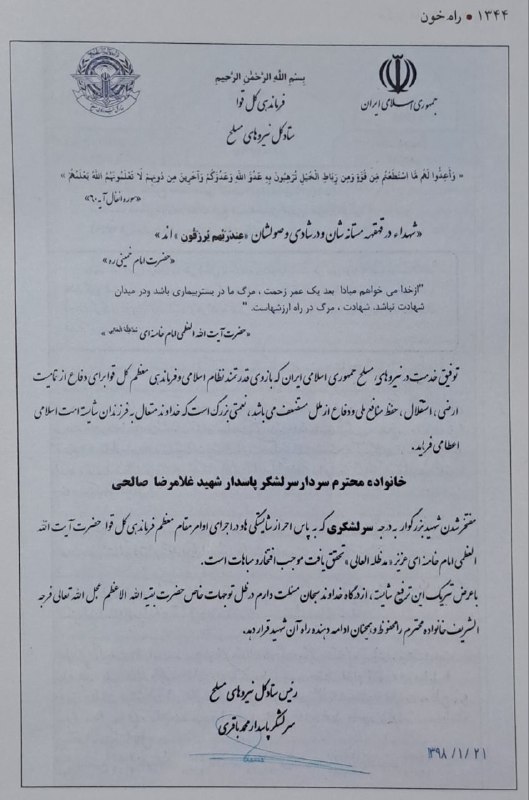 ۱۳۴۴ • راه خون
بِسمِ اللهِ الرَّحمنِ الرَّحیم
فرماندهی کل قوا
جمهوری اسلامی ایران
ستاد کل نیروهای مسلح
« وَأَعِدُّوا لَهُم مَّا اسْتَطَعْتُم مِّن قُوَّةٍ وَمِن رِّبَاطِ الْخَيْلِ تُرْهِبُونَ بِهِ عَدُوَّ اللَّهِ وَعَدُوَّكُمْ وَآخَرِينَ مِن دُونِهِمْ لَا تَعْلَمُونَهُمُ اللَّهُ يَعْلَمُهُمْ »
«سوره انفال آیه ۶۰»
«شهداء در قهقهه مستانه شان و در شادی وصولشان «عِندَرَبِّهِم یُرزَقُون» اند»
«حضرت امام خمینی ره»
"ازخدا می خواهم مبادا بعد یک عمر زحمت ، مرگ ما در بستربیماری باشد ودر میدان
شهادت نباشد. شهادت ، مرگ در راه ارزشهاست. "
«حضرت آیت الله العظمی امام خامنه ای مدظله العالی»
توفیق خدمت در نیروهای مسلح جمهوری اسلامی ایران که بازوی قدرتمند نظام اسلامی و فرماندهی معظم کل قوا برای دفاع از تمامیت
ارضی ، استقلال ، حفظ منافع ملی و دفاع از ملل مستضعف می باشد ، نعمتی بزرگ است که خداوند متعال به فرزندان شایسته امت اسلامی
اعطا می فرماید.
خانواده محترم سردار سرلشگر پاسدار شهید غلامرضا صالحی
مفتخر شدن شهید بزرگوار به درجه سرلشگری که به پاس احراز شایستگی ها و در اجرای اوامر مقام معظم فرماندهی کل قوا حضرت آیت الله
العظمی امام خامنه ای عزیز «مدظله العالی» تحقق یافت موجب افتخار و مباهات است.
با عرض تبریک این ترفیع شایسته ، از درگاه خداوند سبحان مسئلت دارم در ظل توجهات خاص حضرت بقیه الله الاعظم عجل الله تعالی فرجه
الشریف خانواده محترم را محفوظ و همچنان ادامه دهنده راه آن شهید قرار دهد.
رئیس ستاد کل نیروهای مسلح
سرلشگر پاسدار محمد باقری
۱۳۹۸/۱/۲۱